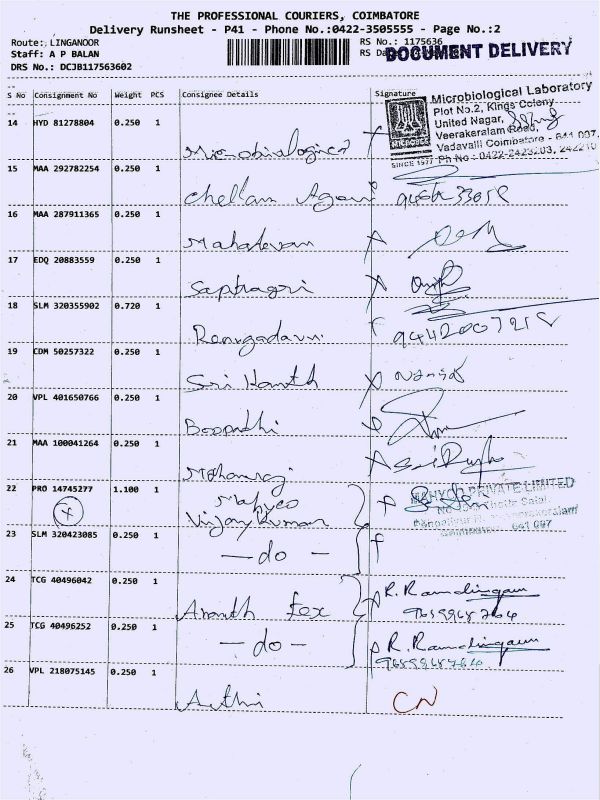 THE PROFESSIONAL COURIERS, COIMBATORE
Delivery Runsheet - P41 - Phone No.:0422-3505555 - Page No.:2
Route: LINGANOOR
RS No.: 1175636
Staff: A P BALAN
RS Da
DOCUMENT DELIVERY
DRS No.: DCJB117563602
S No Consignment No Weight PCS Consignee Details Signature
Microbiological Laboratory
Plot No.2, Kings Colony
United Nagar,
Veerakeralam Road,
Vadavalli Coimbatore - 641 007.
SINCE 1977 Ph No : 0422-2423203, 242210
14 HYD 81278804 0.250 1
Microbiological
15 MAA 292782254 0.250 1
Chellam
16 MAA 287911365 0.250 1
Mahadevan
17 EDQ 20883559 0.250 1
Sapthagiri
18 SLM 320355902 0.720 1
Renugadavi 9442007215
19 CDM 50257322 0.250 1
Sri Kanth
20 VPL 401650766 0.250 1
Boopathi
21 MAA 100041264 0.250 1
Mohanraj
22 PRO 14745277 1.100 1
Mahyco
Vijay Kumar
MAHYCO PRIVATE LIMITED
641 007
23 SLM 320423085 0.250 1
- do -
24 TCG 40496042 0.250 1
Ananth Tex R. Ramalingam
9659965764
25 TCG 40496252 0.250 1
- do - R. Ramalingam
9659965764
26 VPL 218075145 0.250 1
Arthi CN